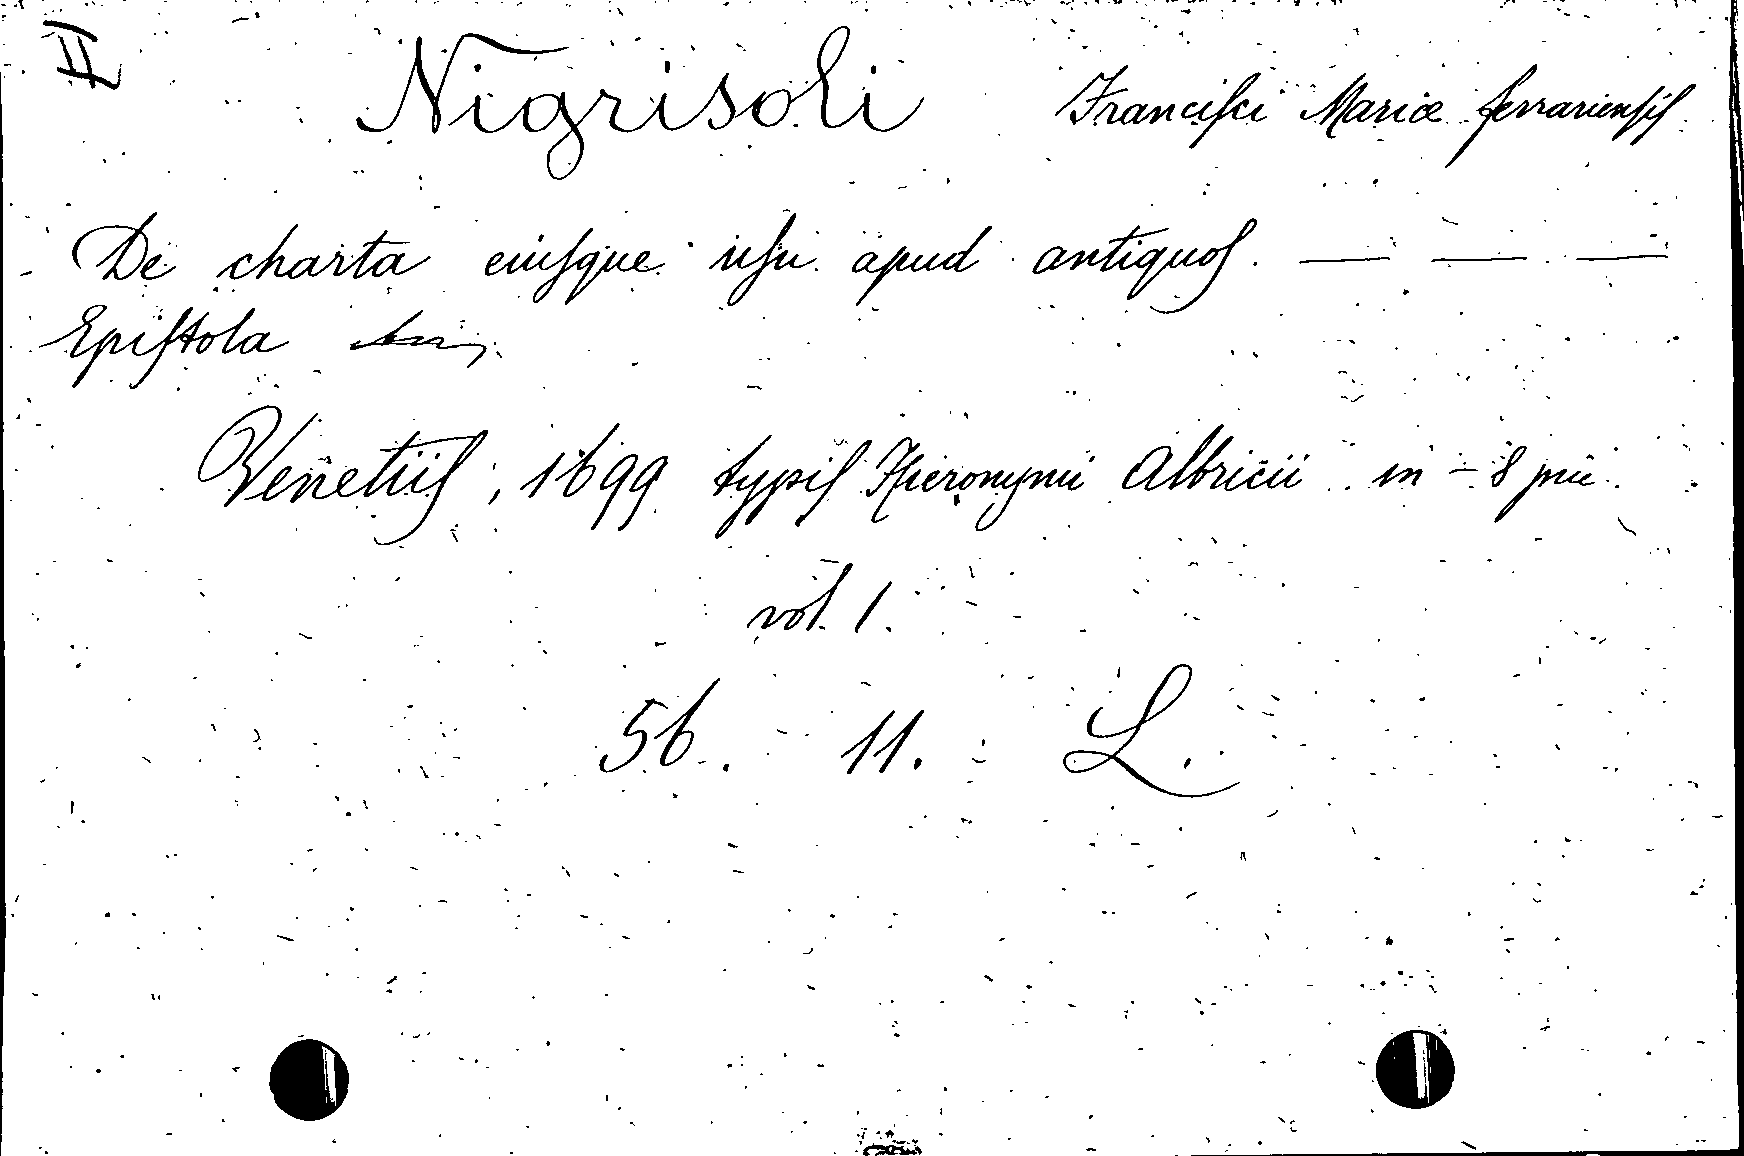 II
Nigrisoli Francisci Mariæ ferrariensis
De charta eiusque usu apud antiquos. — — —
Epistola
Venetiis, 1699 typis Hieronymi Albricii in - 8 pic.
vol. 1.
56. 11. L.